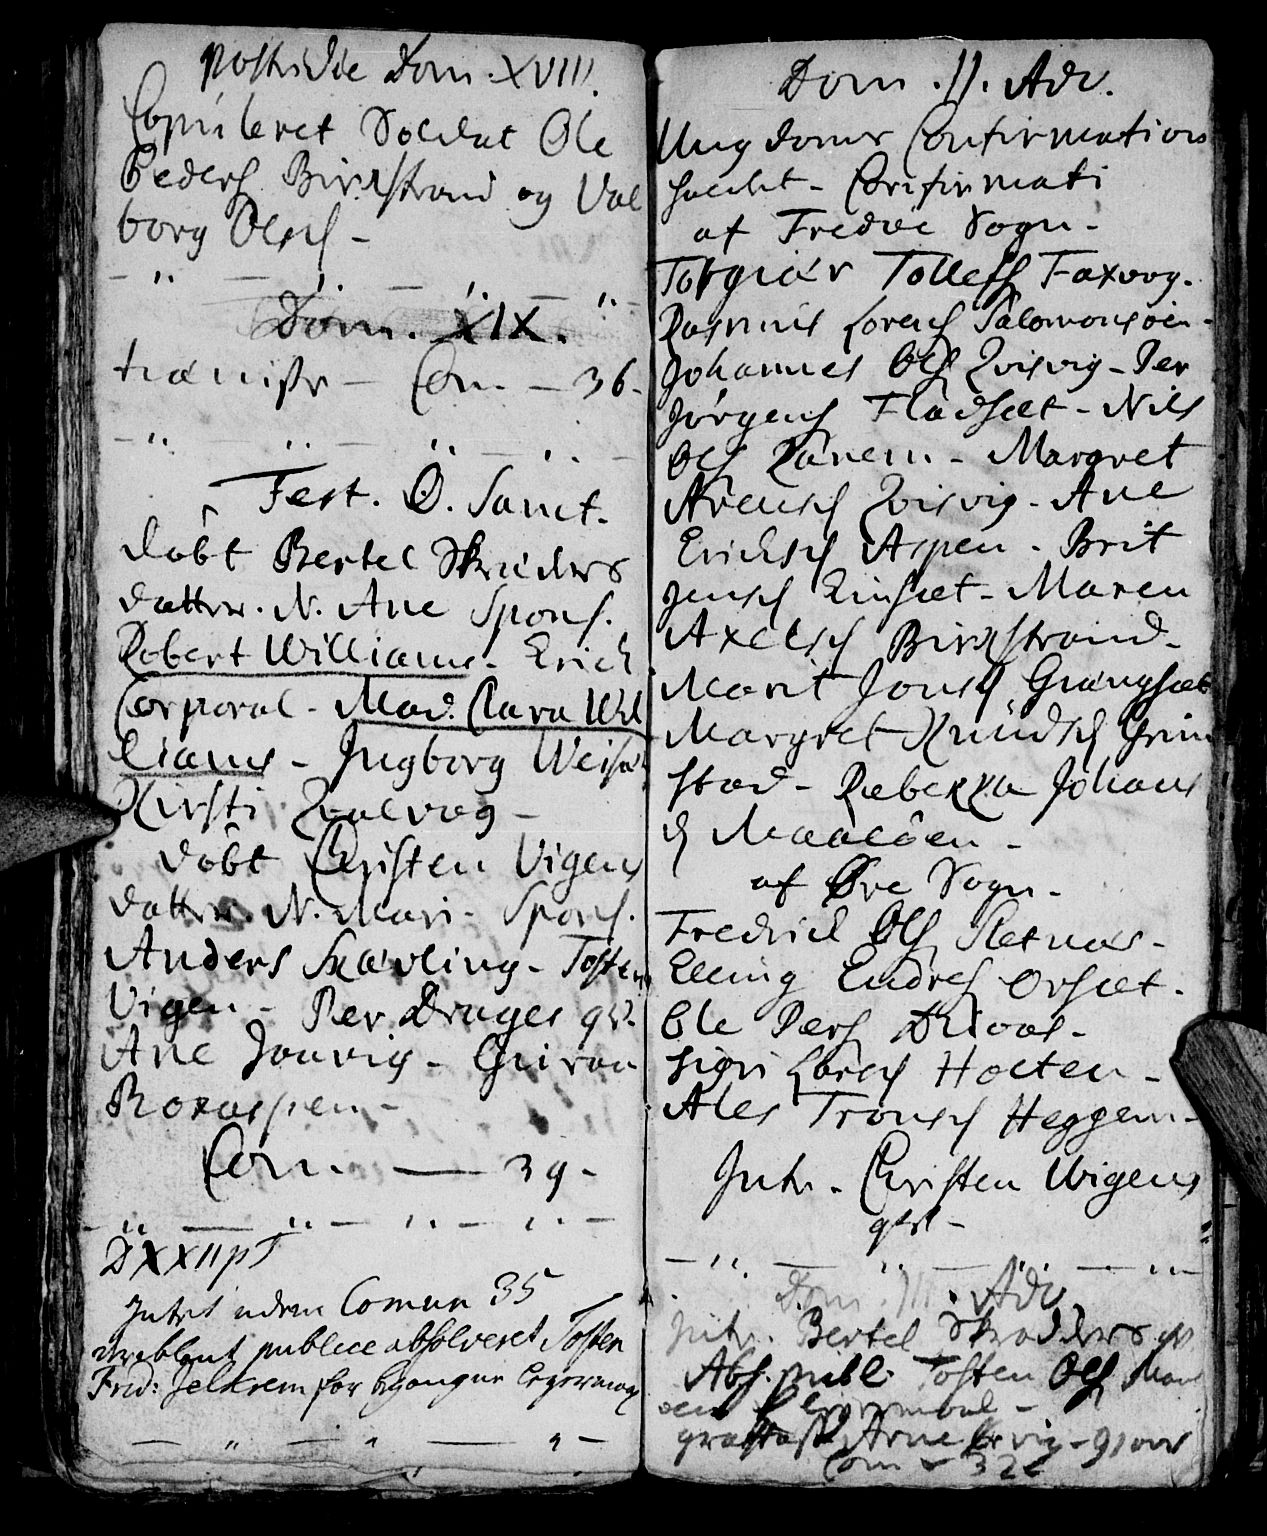 postridie Dom. XVIII.
Copuleret Soldat Ole
Peders Birkstrand og Val
borg Olsd –
Dom. XIX.
Com. – 36 –
Fest. O. Sanct.
døbt Bertel Skræders
datter. N. Ane Spons.
Robert Williams – Erich
Corporal – Mad. Clara Wil
liams – Ingborg Weise
Kirsti Qvalvog –
døbt Christen Vigens
datter. N. Mari – Spons.
Anders Skævling – Tosten
Vigen – Per Drages qv.
Ane Jonvig – Guroe
Roxaspen –
Com. — 39 –
D XXII p T
Comun 35
publice absolveret Tosten
Frid: Jelkrem for begangne
Dom. II. Adv.
Ungdoms Confirmation
holdt – Confirmati
af Fredøe Sogn –
Torgier Tollefs Faxvog.
Rasmus Lorens Salomonsøen –
Johannes Ols Qvisvig – Per
Jørgens Fladset – Nils
Ols Ranem – Margret
Arensd Qvisvig – Ane
Ericksd Aspen – Brit
Jensd Einset – Maren
Axelsd Birkstrand –
Marit Jonsd Grangset
Margret Knudsd Grim
stad – Rebekka Johans
d Maaløen –
af Øre Sogn –
Fredrick Ols Sletnæs –
Elling Endres Orset –
Ole Pers Drivas –
Sigri Larsd Holten –
Ales Tronsd Heggem –
Intr. Christen Wigens
qv –
Dom. III. Adv
Intr. Bertel Skradders qv
Abs. publ. Tosten Ols
Arne
Com – 32